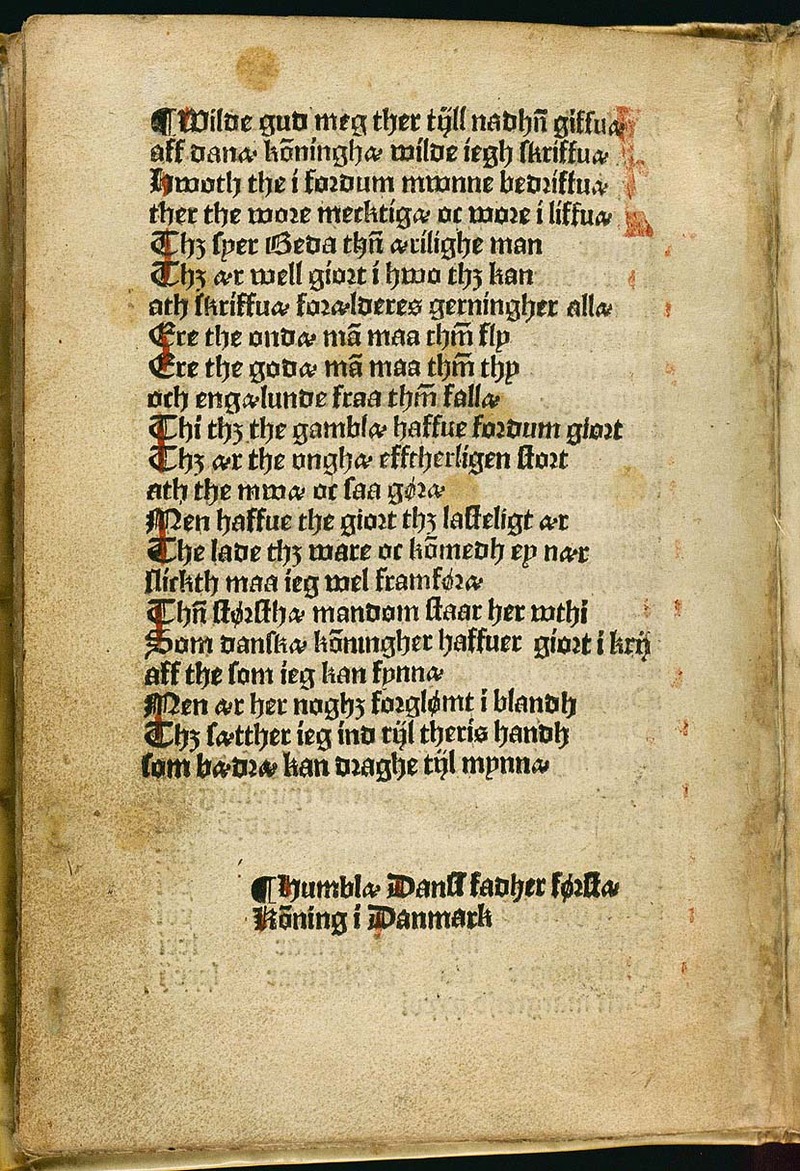 ¶Wilde gud meg ther tijll nadhn̄ giffuæ
aff danæ kōninghæ wilde iegh skriffuæ
Hwoth the i fordum mwnne bedriffuæ
ther the wore mecktigæ oc wore i liffuæ
Thꝫ syer Beda thn̄ ærilighe man
Thꝫ ær well giort i hwo thꝫ kan
ath skriffuæ forælderes gerningher allæ
Ere the ondæ mā maa thm̄ fly
Ere the godæ mā maa thm̄ thy
och engælunde fraa thm̄ fallæ
Thi thꝫ the gamblæ haffue fordum giort
Thꝫ ær the unghæ efftherligen stort
ath the mwæ oc saa gøræ
Men haffue the giort thꝫ lasteligt ær
The lade thꝫ ware oc kōmedh ey nær
slickth maa ieg wel framføræ
Thn̄ størsthæ mandom staar her wthi
Som danskæ kōningher haffuer giort i krij
aff the som ieg kan fynnæ
Men ær her noghꝫ forglømt i blandh
Thꝫ sætther ieg ind tijl theris handh
som bædræ kan draghe tijl mynnæ
¶Humblæ Danss fadher førstæ
Kōning i Danmark